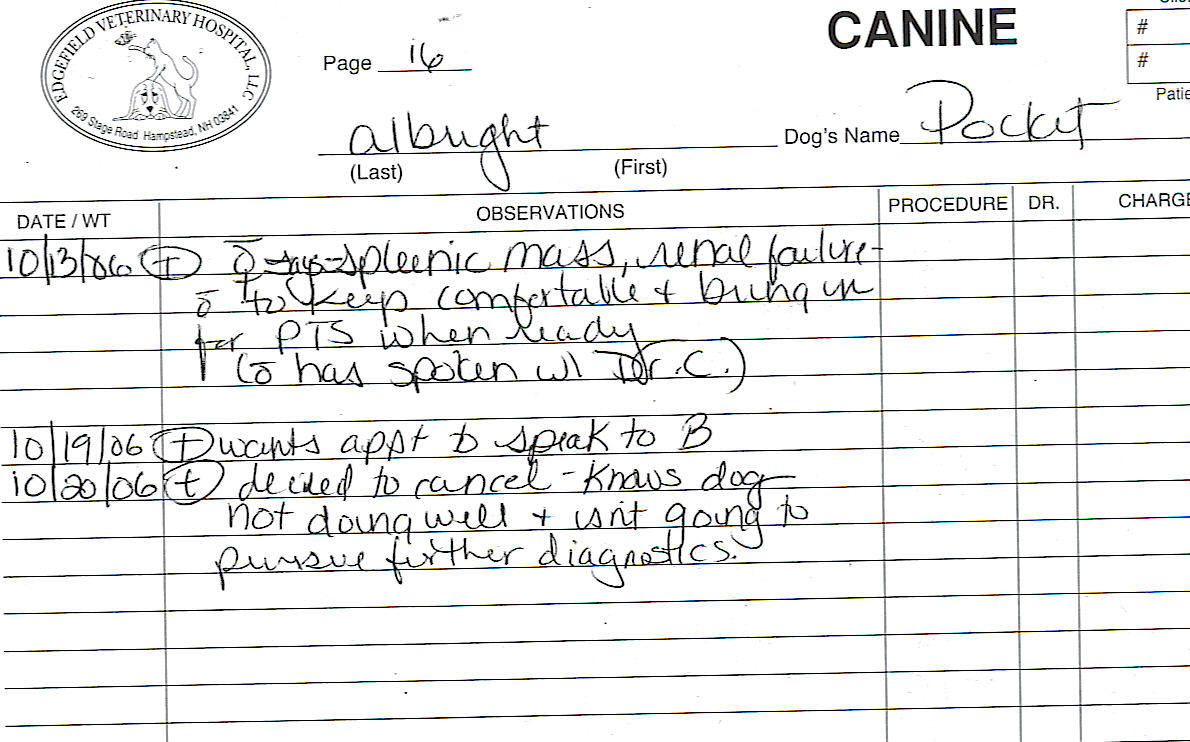 EDGEFIELD VETERINARY HOSPITAL, LLC
269 Stage Road Hampstead, NH 03841
Page 16
CANINE
#
#
albright
Dog's Name Pocket
(Last) (First)
DATE / WT OBSERVATIONS PROCEDURE DR. CHARGE
10/13/06 T ō spleenic mass, renal failure-
ō to keep comfortable + bring in
for PTS when ready
(ō has spoken w/ Dr. C.)
10/19/06 t wants appt to speak to B
10/20/06 t decided to cancel - knows dog
not doing well + isnt going to
pursue further diagnostics.